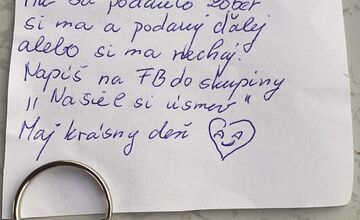 sa podarilo zober
si ma a podaruj ďalej
alebo si ma nechaj.
Napíš na FB do skupiny
„ Našiel si úsmev "
Maj krásny deň